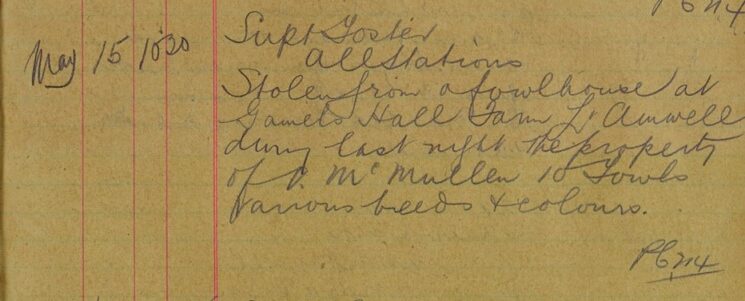 PC 214
May 15 1030 Supt Foster
All Stations
Stolen from a fowlhouse at
Gamels Hall Farm Lt Amwell
during last night the property
of P. McMullen 10 Fowls
various breeds & colours.
PC 214